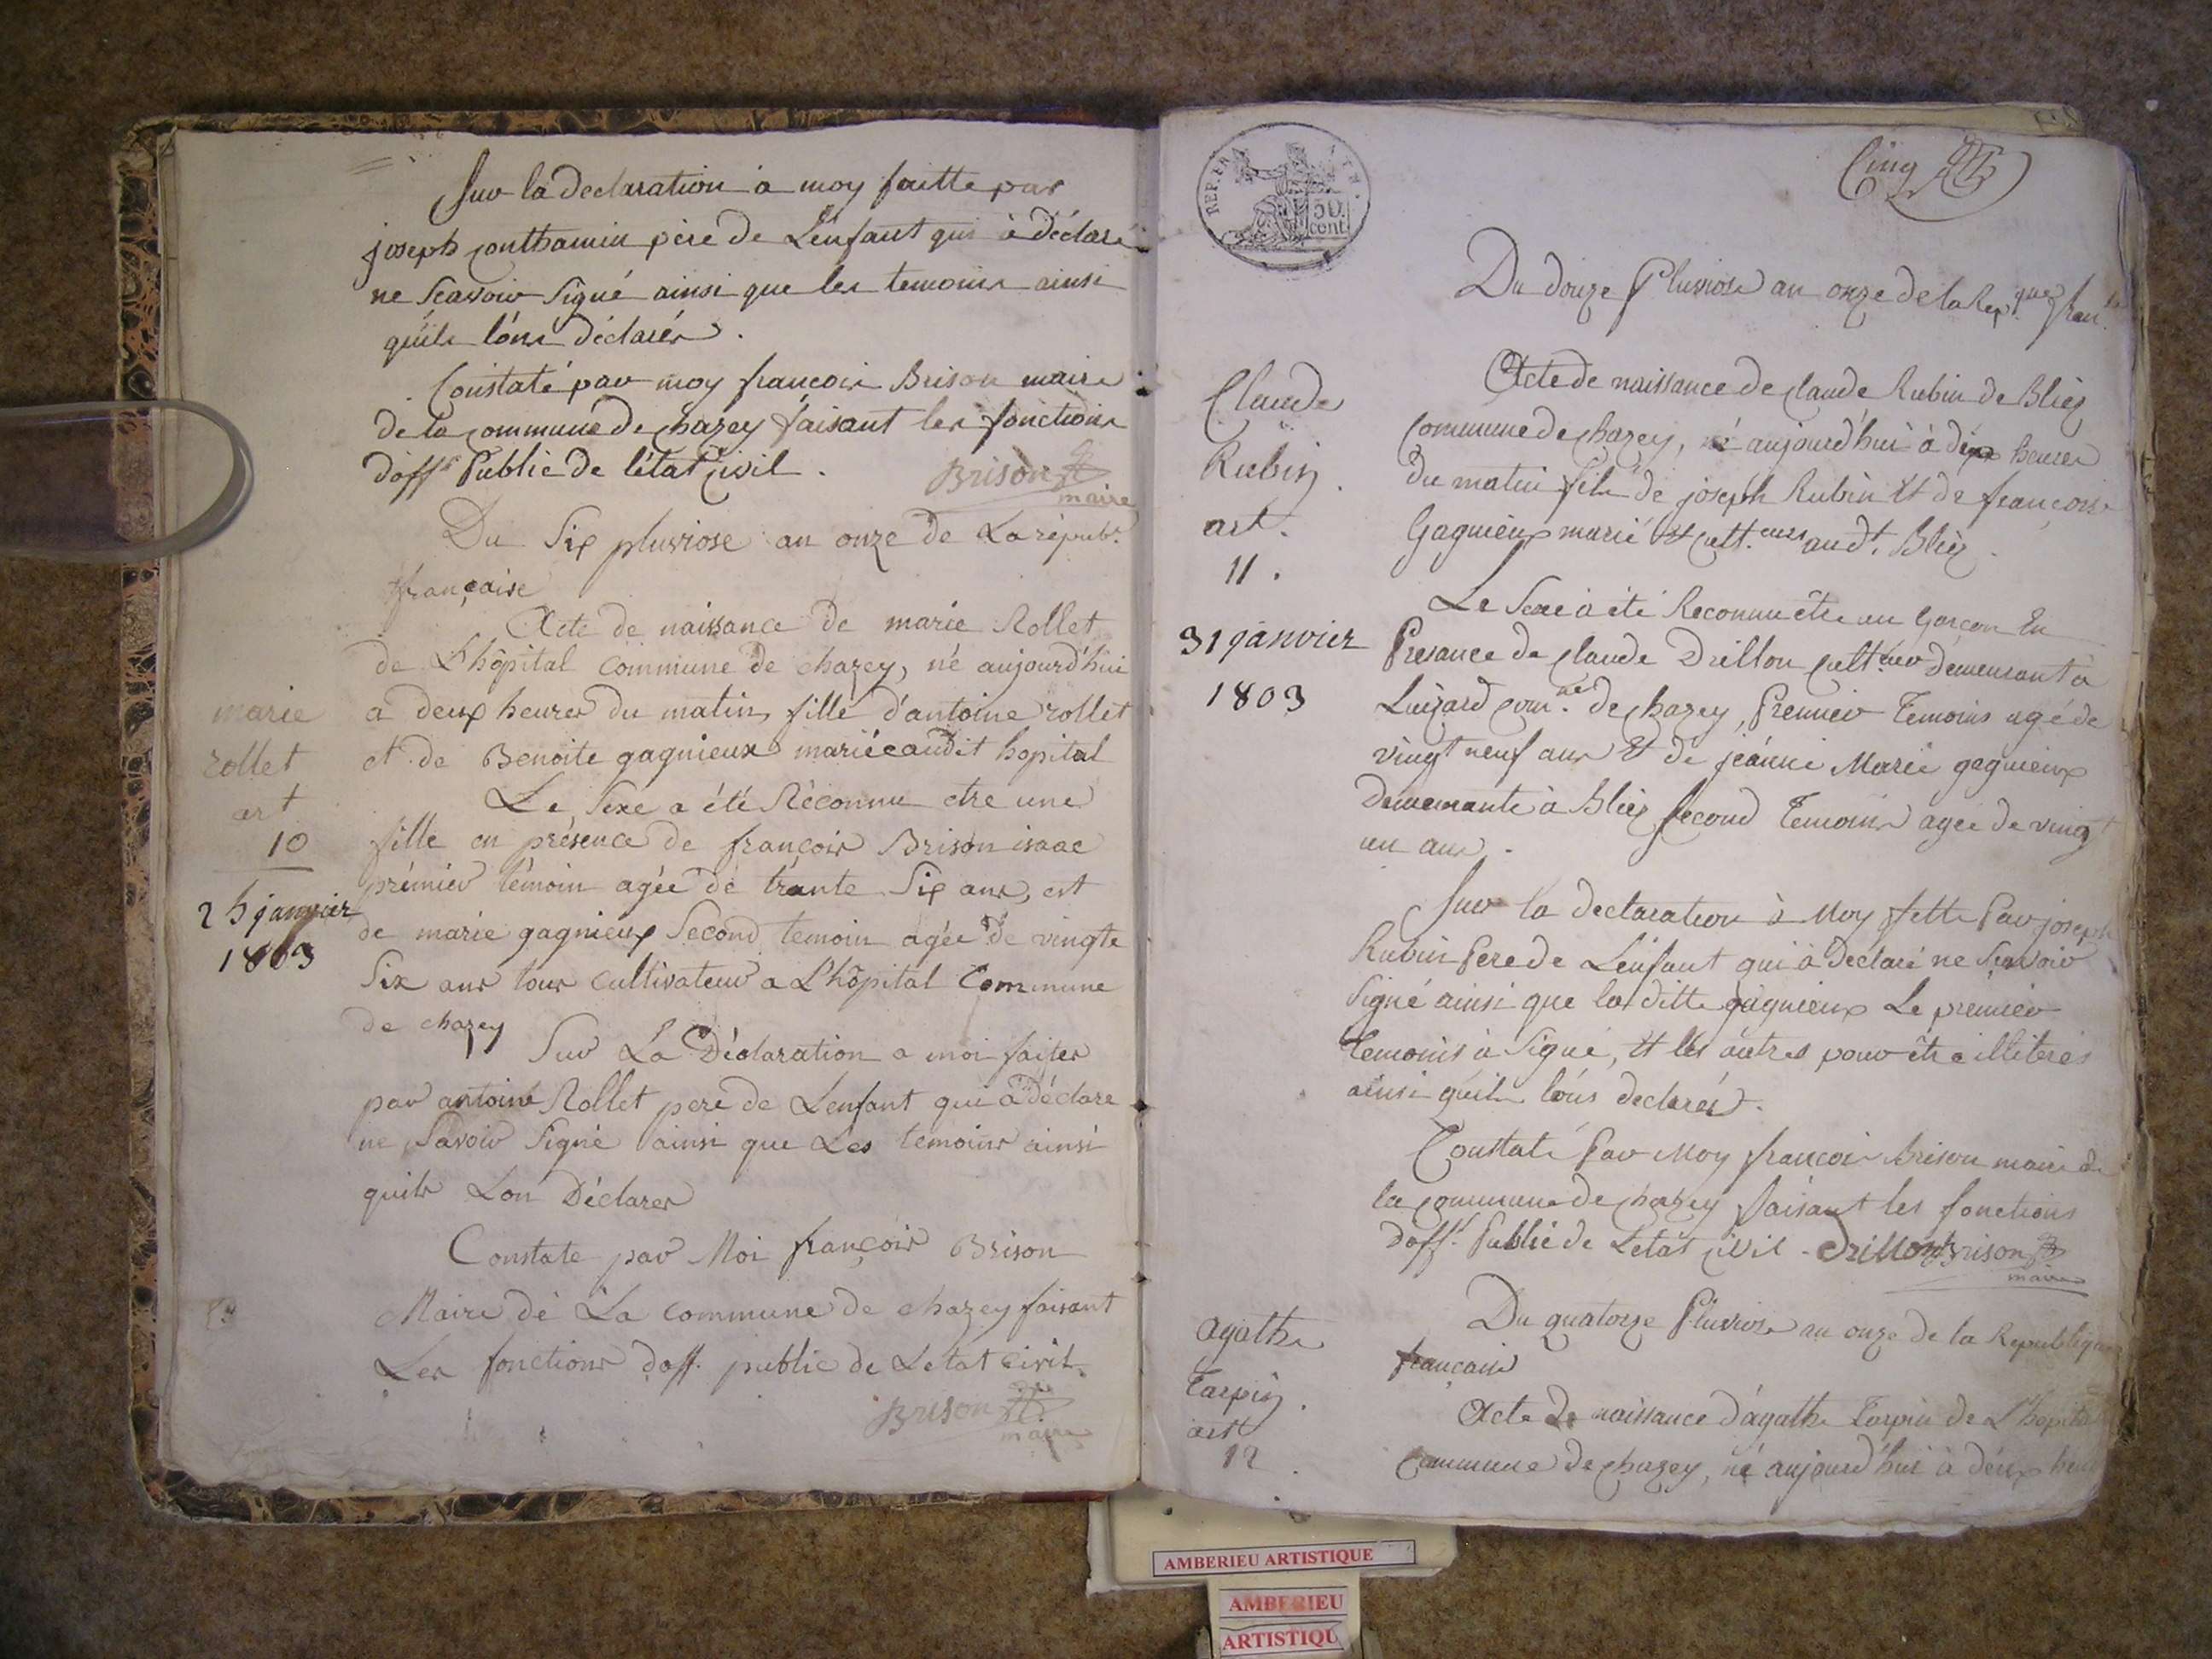 Sur la declaration à moy faitte par
joseph conthamin père de L'enfant qui à déclaré
ne Scavoir Signé ainsi que les temoins ainsi
qu'ils lóns déclarér.
Constaté par moy françois Brison maire
de la commune de chazey faisant les fonctions
d'off. Public de l'état Civil.
Brison
maire
Du Six pluviose an onze de La répub.
française
Acte de naissance de marie Rollet
de L'hôpital Commune de chazey, né aujourd'hui
a deux heures du matin, fille d'antoine rollet
et de Benoite gagnieux mariée audit hopital
Le Sexe a été Réconnu etre une
fille en présence de françois Brison isaac
prémier témoin agée dé trante Six ans, est
de marie gagnieux Second temoin agée de vingte
Six ans tous cultivateur a L'hôpital Commune
de chazey
Sur La Déclaration a moi faites
par antoine Rollet pere de L'enfant qui a déclare
ne Savoir Signé ainsi que Les temoins ainsi
quils Lon Déclarer
Constate par Moi françois Brison
Maire dé La commune de chazey faisant
Les fonctions d'off. public de L'etat Civil.
Brison
maire
marie
rollet
art
10
25 janvier
1803
REP. FRA
50.
cent.
Cinq
Du douze Pluviose an onze de la Rep.que fran.
Acte de naissance de Claude Rubin de Bliez
Commune de chazey, né aujourd'hui à dix heures
du matin fils de joseph Rubin Et de françoise
Gagnieux marié Et cult.eurs aud.t Bliez.
Le Sexe à été Reconnu être un Garçon En
Presance de Claude Drillon cult.eur demeurant à
Luizard com.ne de chazey, Premier Temoins agé de
vingt neuf ans Et de jeanne Marie gagnieux
demeurante à Bliez Second Temoins agée de vingt
un ans.
Sur la declaration à Moy fette Par joseph
Rubin Pere de L'enfant qui à déclaré ne Scavoir
Signé ainsi que la ditte gagnieux Le premier
Temoins à Signé, Et les autres pour être illiterés
ainsi qu'ils lóns declarés.
Constaté Par Moy françois Brison maire de
la commune de chazey faisant les fonctions
d'off. Public de L'etat Civil. Drillon Brison
maire
Du quatorze Pluviose an onze de la Republique
française
Acte de naissance d'agathe Tarpin de L'hopital
Commune de chazey, né aujourd'hui à deux heu
Claude
Rubin.
art.
11.
31 janvier
1803
agathe
Tarpin.
art
12.
AMBERIEU ARTISTIQUE
AMBERIEU
ARTISTIQU